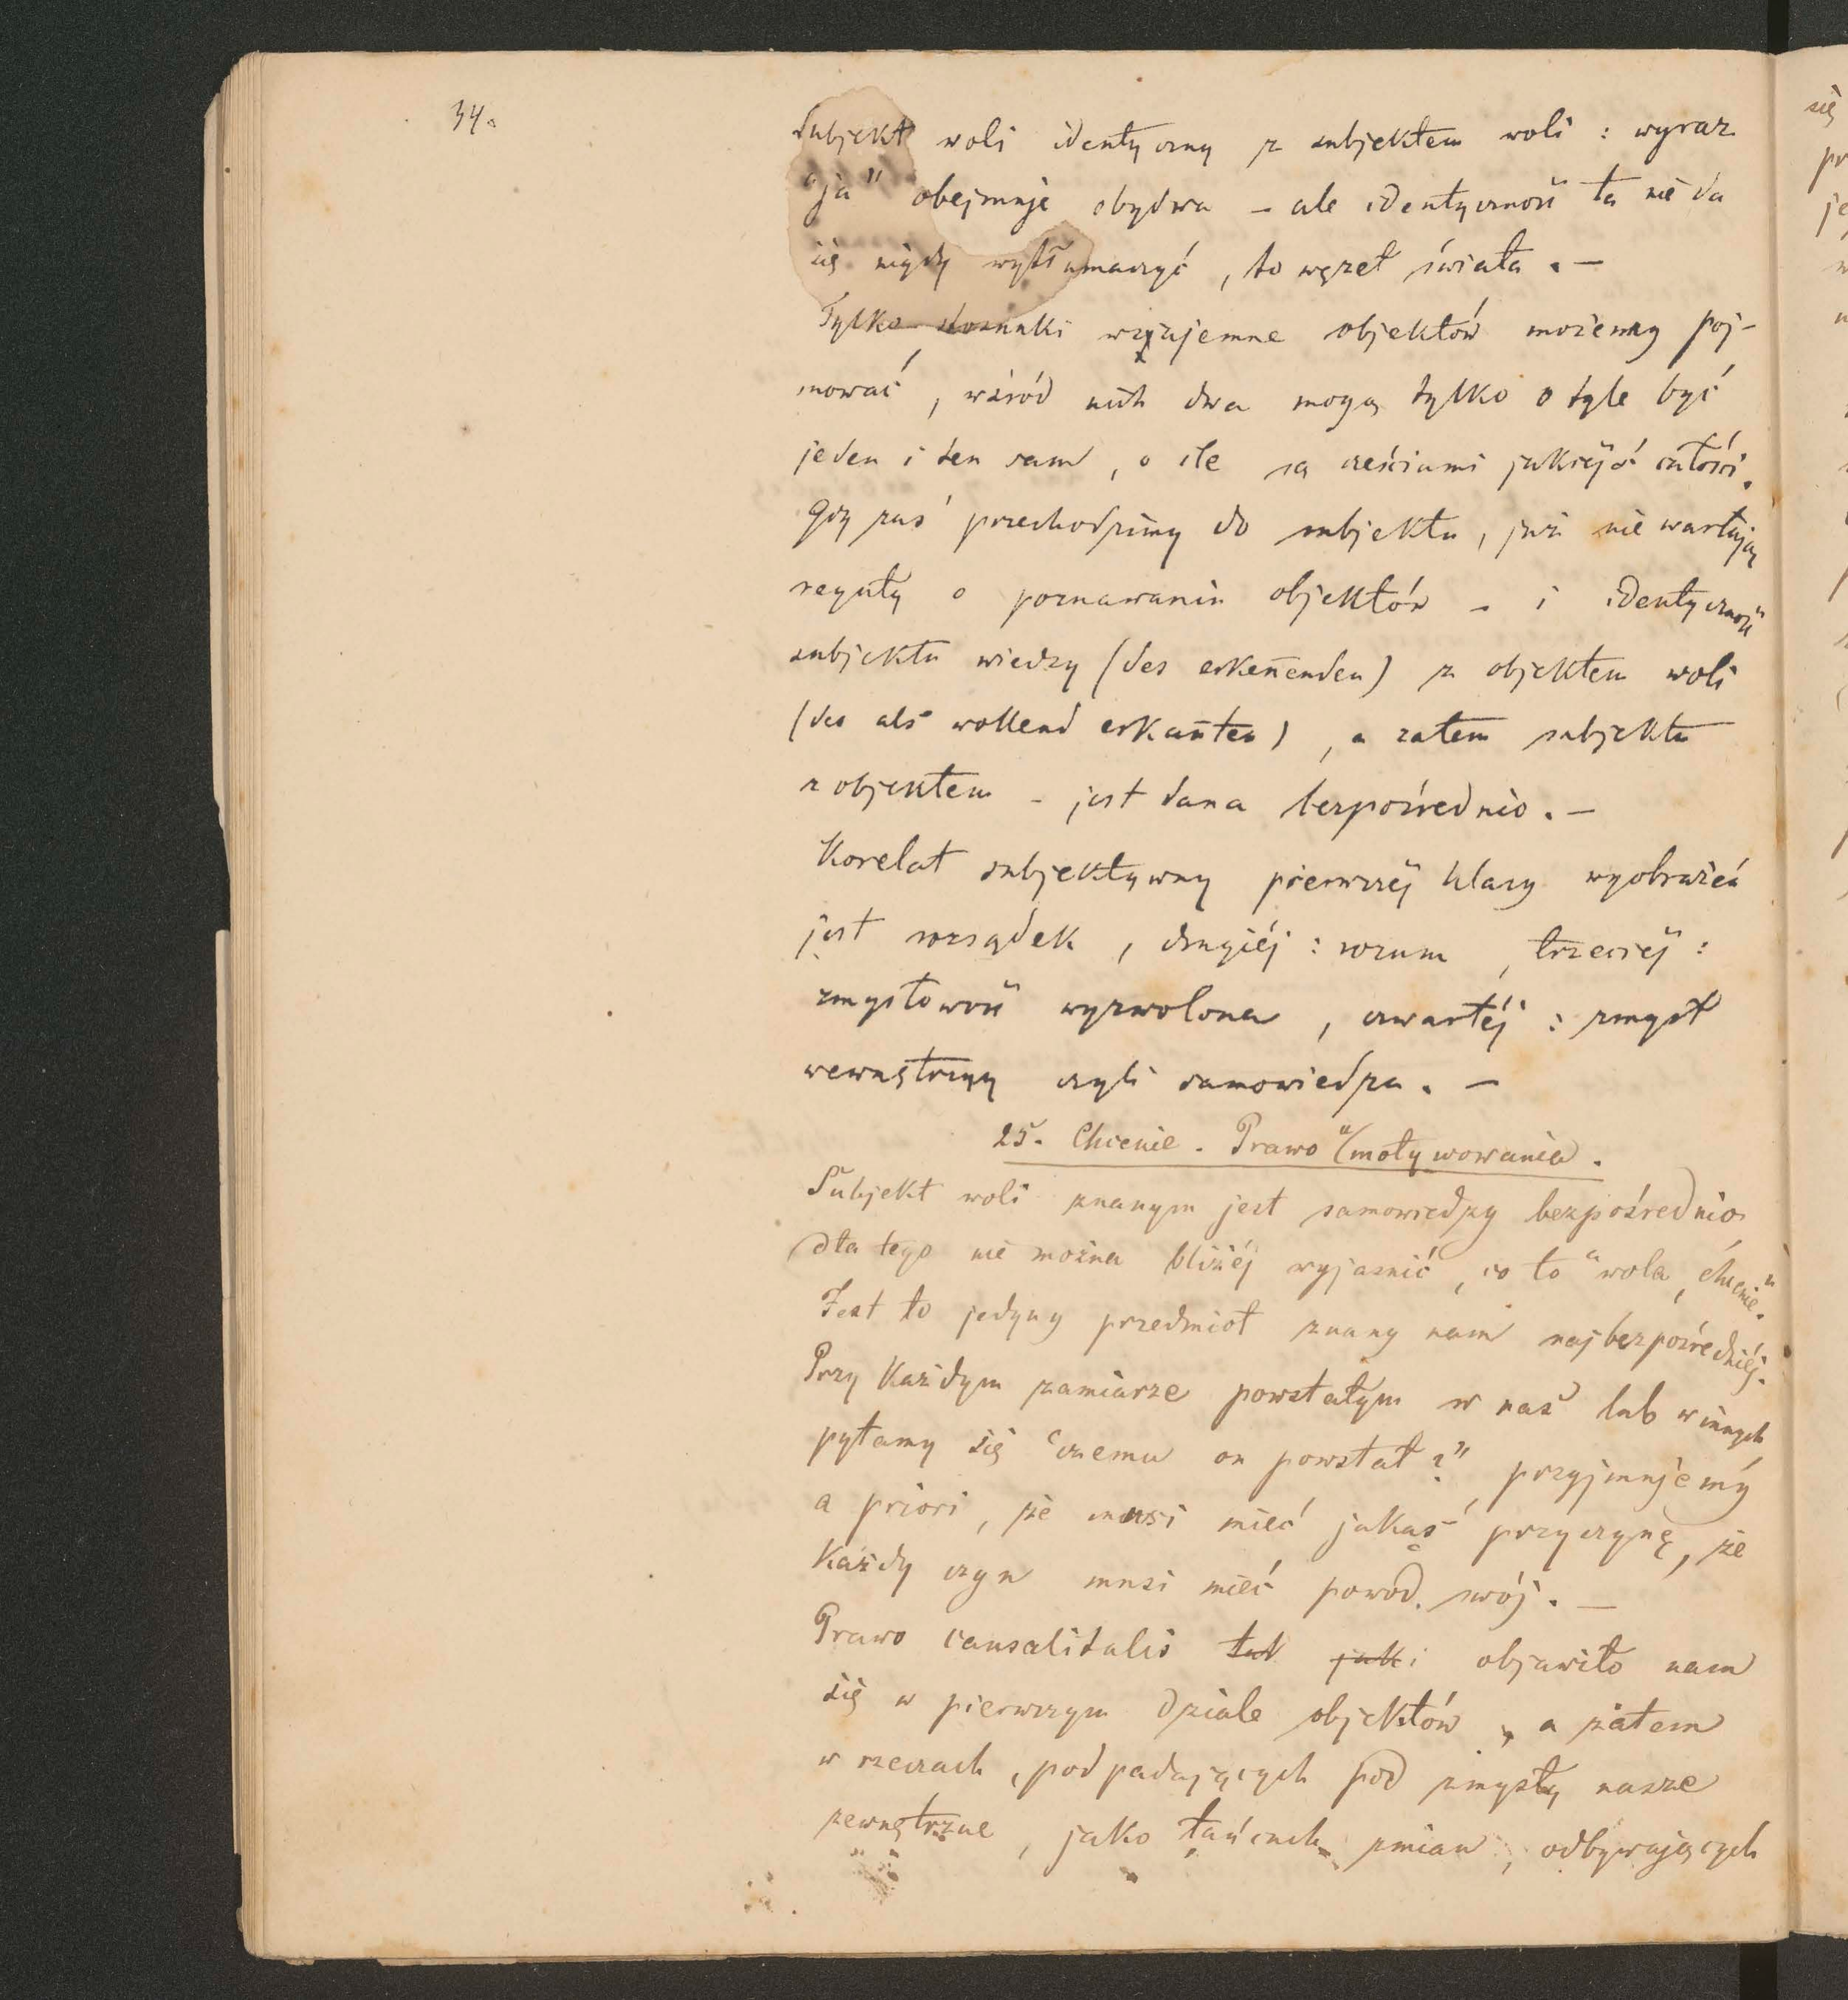 34.
Subjekt woli identyczny z subjektem woli : wyraz
"ja" obejmuje obydwa – ale identyczność ta nie da
się nigdy wytłumaczyć, to węzeł świata. –
Tylko stosunki wzajemne objektów możemy poj-
mować, wśród nich dwa mogą tylko o tyle być
jeden i ten sam, o ile są cześciami jakiejś całości.
Gdy zaś przechodzimy do subjektu, już nie wartają
reguły o poznawaniu objektów – i identyczność
subjektu wiedzy (des erkeñenden) z objektem woli
(des als wollend erkañten), a zatem subjektu
z objektem – jest dana bezpośrednio. –
Korelat subjektywny pierwszéj klasy wyobrażeń
jest rozsądek, drugiéj : rozum, trzeciéj :
zmysłowość wyzwolona, czwartéj : zmysł
wewnętrzny czyli samowiedza. –
25. Chcenie. Prawo "motywowania.
Subjekt woli znanym jest samowiedzy bezpośrednio
dla tego nie można bliżéj wyjasnić, co to "wola, chcenie".
Jest to jedyny przedmiot znany nam najbezpośredniéj.
Przy każdym zamiarze powstałym w nas lub w innych
pytamy się "czemu on powstał?", przyjmujemy
a priori, że musi mieć jakąś przyczynę, że
Każdy czyn musi mieć powód swój. –
Prawo causalitalis tak jak i objawiło nam
się w pierwszym dziale objektów, a zatem
w rzeczach, podpadających pod zmysły nasze
zewnętrzne, jako łańcuch zmian, odbywających